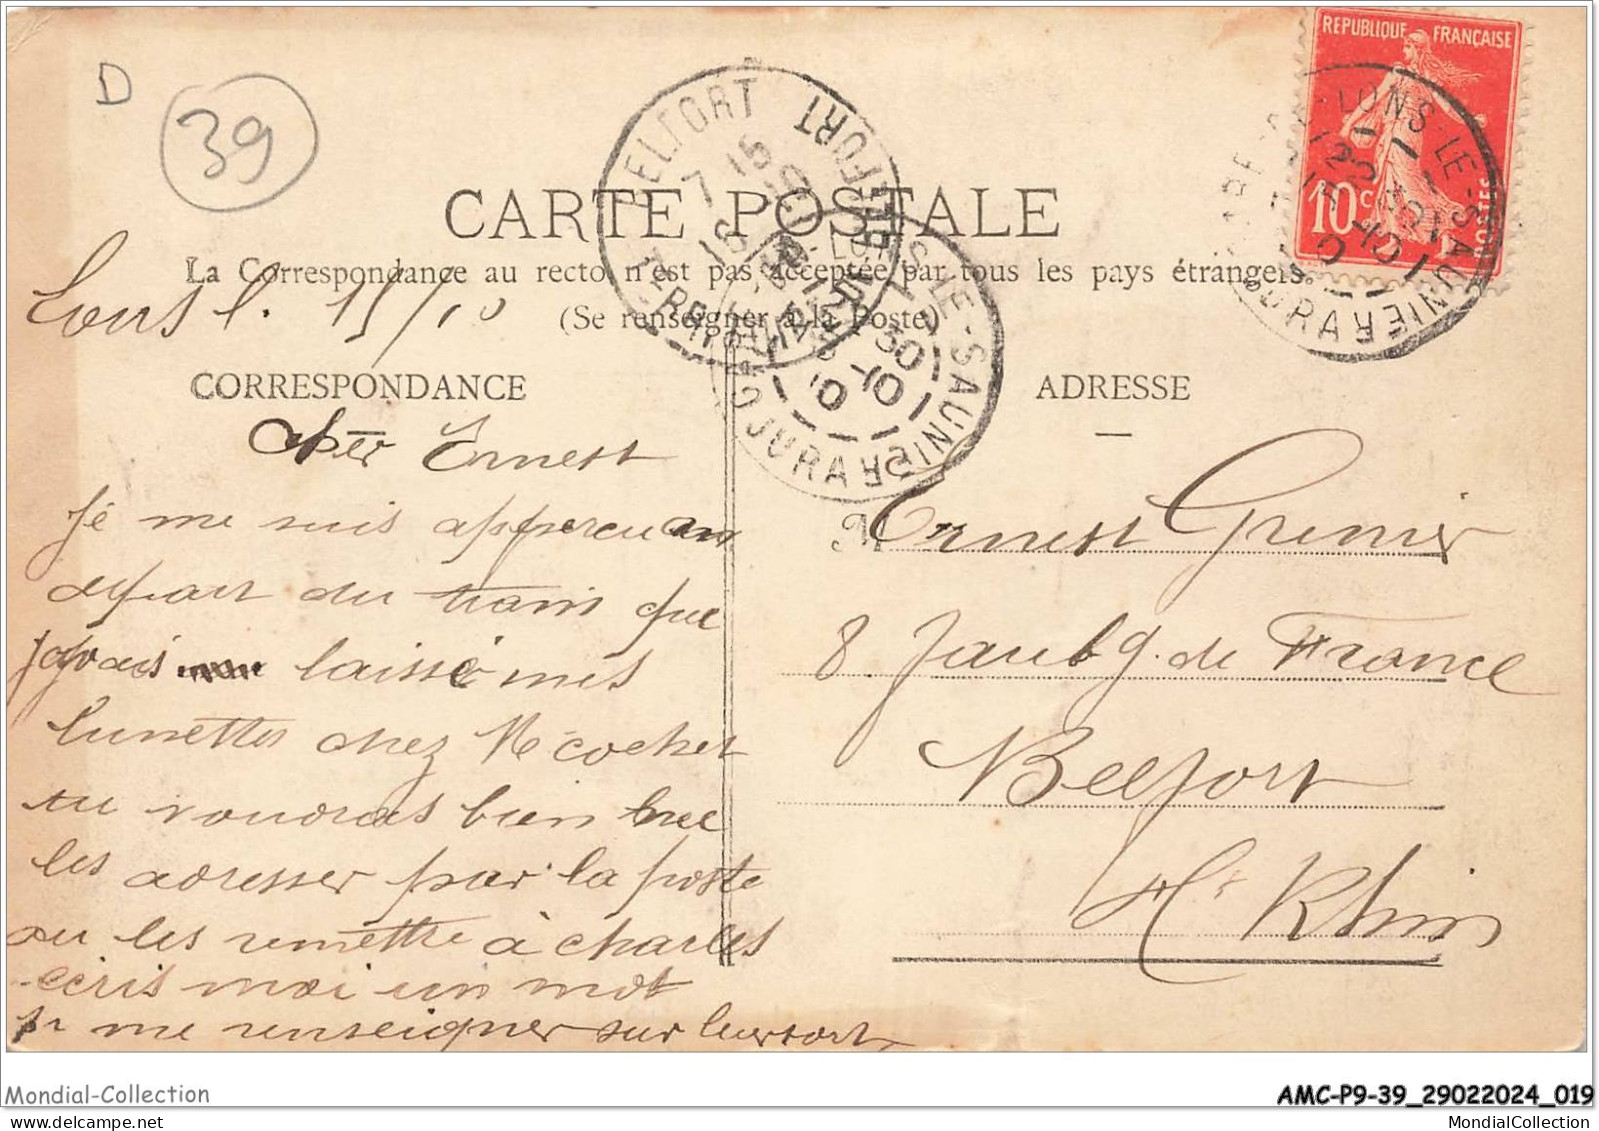 D
39
REPUBLIQUE FRANÇAISE
10c
POSTES
LONS-LE-SAUNIER
JURA
BELFORT
BELFORT
7 15
16
LONS-LE-SAUNIER
JURA
12 30
15-10
10
CARTE POSTALE
La Correspondance au recto n'est pas acceptée par tous les pays étrangers.
(Se renseigner à la Poste)
Lons l. 15/10
CORRESPONDANCE
cher Ernest
Je me suis appercu au
depart du train que
javais laissé mes
lunettes chez Me cochet
tu voudras bien
les adresser par la poste
ou les remettre à charles
ecris moi un mot
pr me renseigner sur leur sort
ADRESSE
M Ernest Grenier
8 Faubg. de France
Belfort
Ht Rhin
Mondial-Collection
AMC-P9-39_29022024_019
MondialCollection